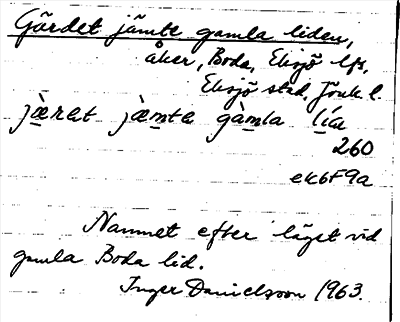 Gärdet jämte gamla liden,
åker, Boda, Eksjö lfs,
Eksjö stad, Jönk. l.
jæ̀rat jæ̀mta gàmla lía
260
ek6F9a
Namnet efter läget vid
gamla Boda lid.
Inger Danielsson 1963.